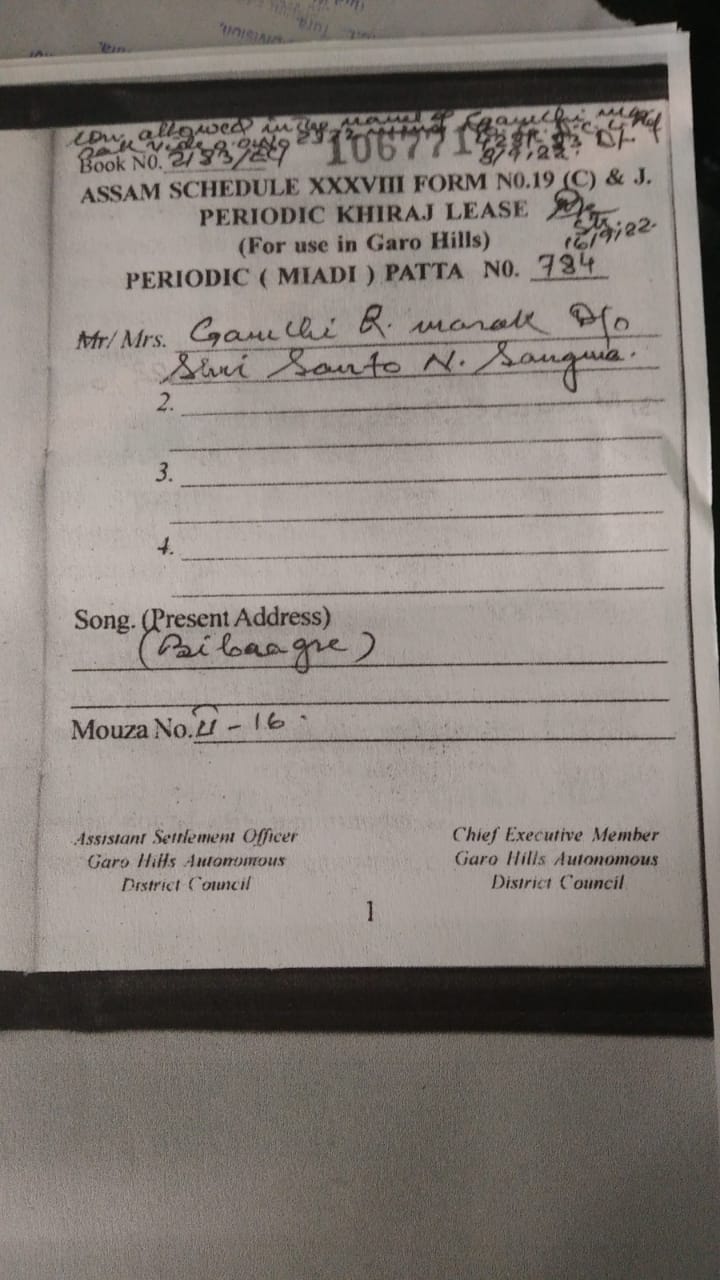 allowed in the name of
Book N0. 2183/
106771
8/9/22
ASSAM SCHEDULE XXXVIII FORM N0.19 (C) & J.
PERIODIC KHIRAJ LEASE
16/9/22
(For use in Garo Hills)
PERIODIC ( MIADI ) PATTA N0. 784
Mr/ Mrs. R. marak D/o
Shri Santo N. Sangma.
2.
3.
4.
Song. (Present Address)
(Bibaagre)
Mouza No. - 16
Assistant Settlement Officer
Garo Hills Autonomous
District Council
Chief Executive Member
Garo Hills Autonomous
District Council
1